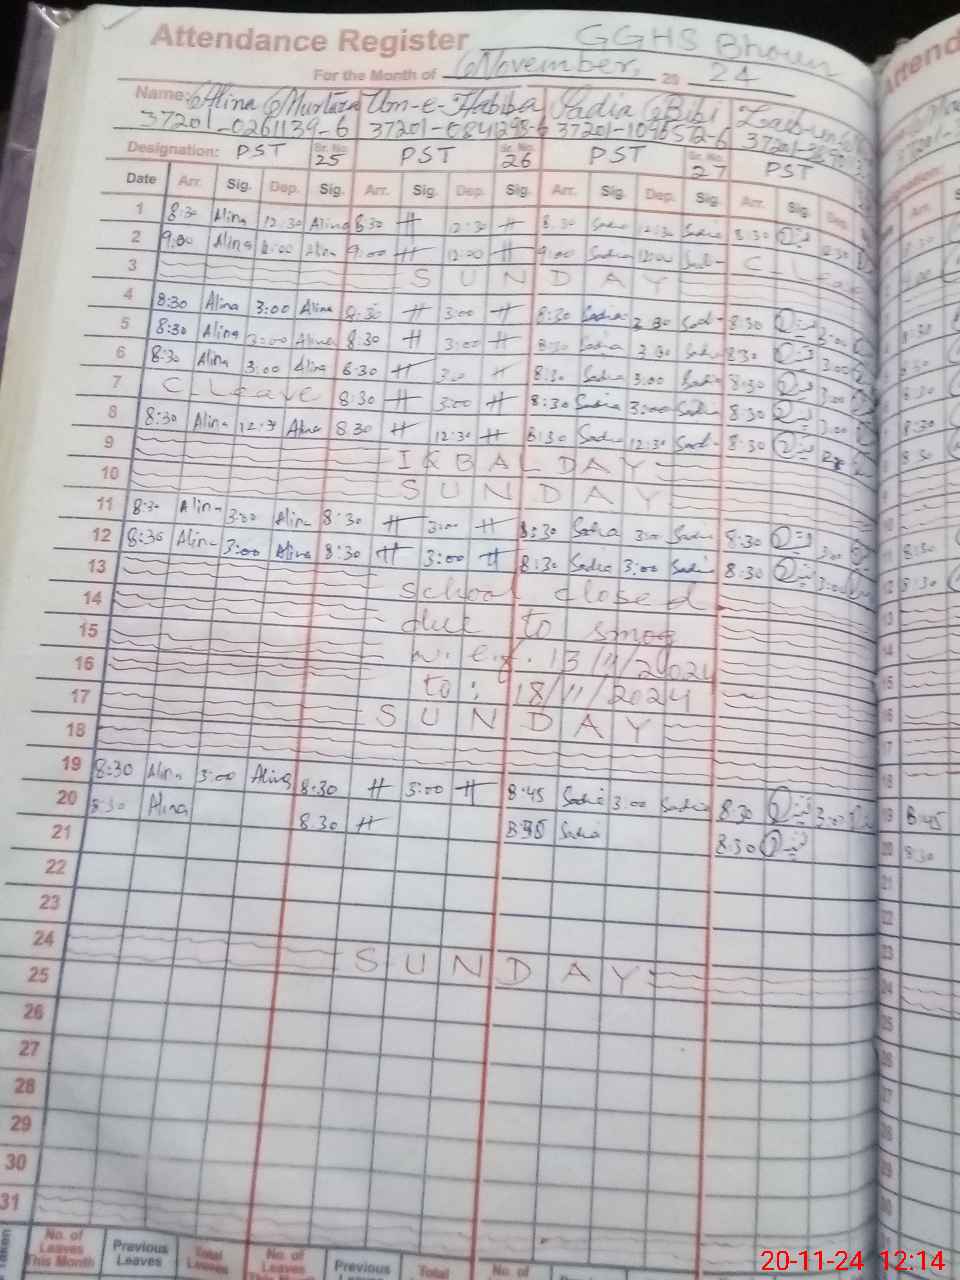 Attendance Register GGHS Bhoun
For the Month of November, 20 24
Name: Alina Murtaza Um-e-Habiba Sadia Bibi
37201-0261139-6 37201-0841295-6 37201-1096572-6 37201-
Designation: PST Sr. No. 25 PST Sr. No. 26 PST Sr. No. 27 PST
Date Arr. Sig. Dep. Sig. Arr. Sig. Dep. Sig. Arr. Sig. Dep. Sig. Arr. Sig. Dep.
1 8:30 Alina 12:30 Alina 8:30 H 12:30 H 8:30 Sadia 12:30 Sadia 8:30
2 9:00 Alina 12:00 Alina 9:00 H 12:00 H 9:00 Sadia 12:00 Sadia C-Leave
3 SUNDAY
4 8:30 Alina 3:00 Alina 8:30 H 3:00 H 8:30 Sadia 2:30 Sadia 8:30 3:00
5 8:30 Alina 3:00 Alina 8:30 H 3:00 H 8:30 Sadia 3:00 Sadia 8:30 3:00
6 8:30 Alina 3:00 Alina 8:30 H 3:00 H 8:30 Sadia 3:00 Sadia 8:30 3:00
7 C-Leave 8:30 H 3:00 H 8:30 Sadia 3:00 Sadia 8:30 3:00
8 8:30 Alina 12:30 Alina 8:30 H 12:30 H 8:30 Sadia 12:30 Sadia 8:30
9 IKBAL DAY
10 SUNDAY
11 8:30 Alina 3:00 Alina 8:30 H 3:00 H 8:30 Sadia 3:00 Sadia 8:30 3:00
12 8:30 Alina 3:00 Alina 8:30 H 3:00 H 8:30 Sadia 3:00 Sadia 8:30 3:00
13 School closed
14 due to smog
15 w.e.f. 13/11/2024
16 to: 18/11/2024
17 SUNDAY
18
19 8:30 Alina 3:00 Alina 8:30 H 3:00 H 8:45 Sadia 3:00 Sadia 8:30 3:00
20 8:30 Alina 8:30 H 8:30 Sadia 8:30
21
22
23
24 SUNDAY
25
26
27
28
29
30
31
No. of Leaves This Month Previous Leaves Total Leaves No. of Leaves Previous Leaves Total No. of
20-11-24 12:14